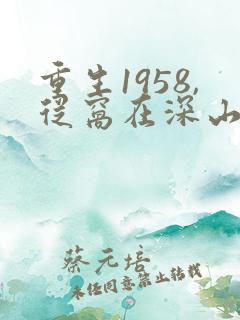 重生1958,
从窝在深山
蔡元培
未经同意禁止转载